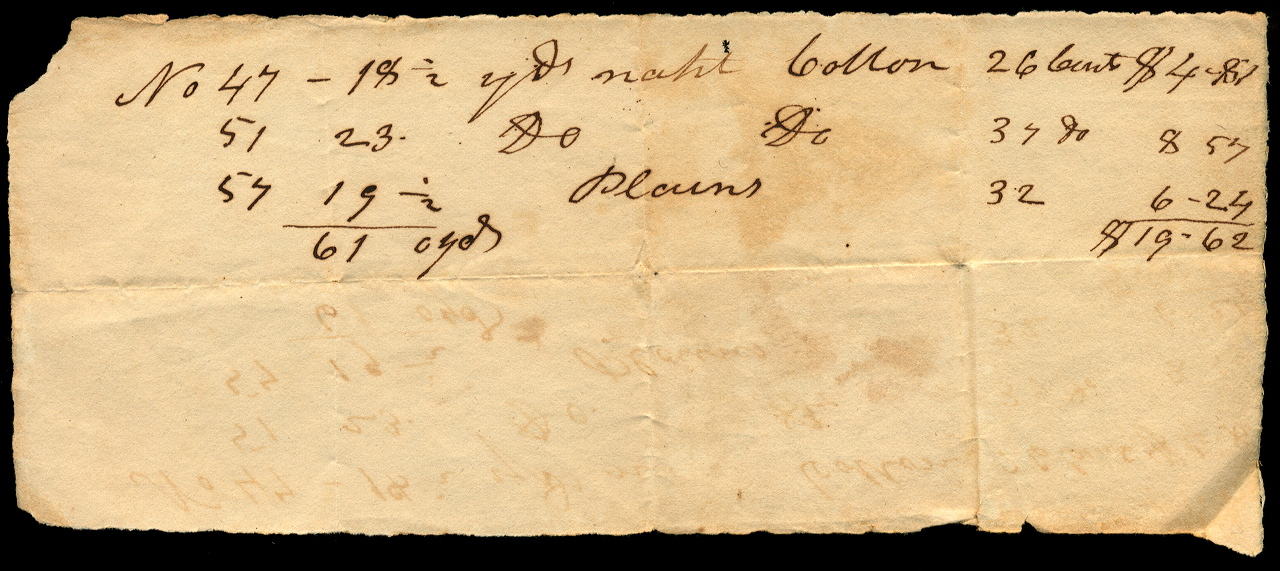 No 47 - 18 ½ yds naht Cotton 26 Cents $ 4 - 81
51 23. Do Do 37 do 8 57
57 19 ½ Plains 32 6 - 24
61 0 yds $ 19 - 62